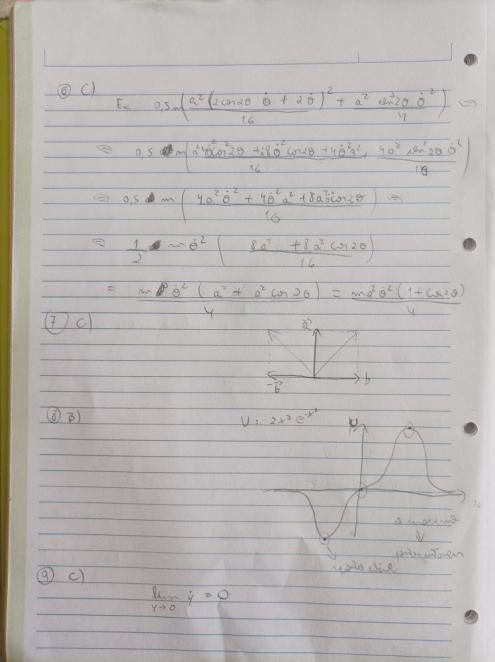 6 C) Ec 0,5m(a²(2cos2θ θ̇ + 2θ̇)²/16 + a² sen²2θ θ̇²/4) ⇔
⇔ 0,5 m(a²4θ̇²cos²2θ + 8θ̇²cos2θ + 4θ̇²a²/16, 4a² sen²2θ θ̇²/16)
⇔ 0,5 m(4a²θ̇² + 4θ̇²a² + 8a²θ̇²cos2θ/16) ⇔
⇔ 1/2 mθ̇² (8a² + 8a² cos2θ/16)
= mθ̇² (a² + a² cos 2θ)/4 = ma²θ̇² (1+cos2θ)/4
7 C)
-b b
8 B) U: 2x³ e^-x² U
9 C)
lim ẏ = 0
y→0